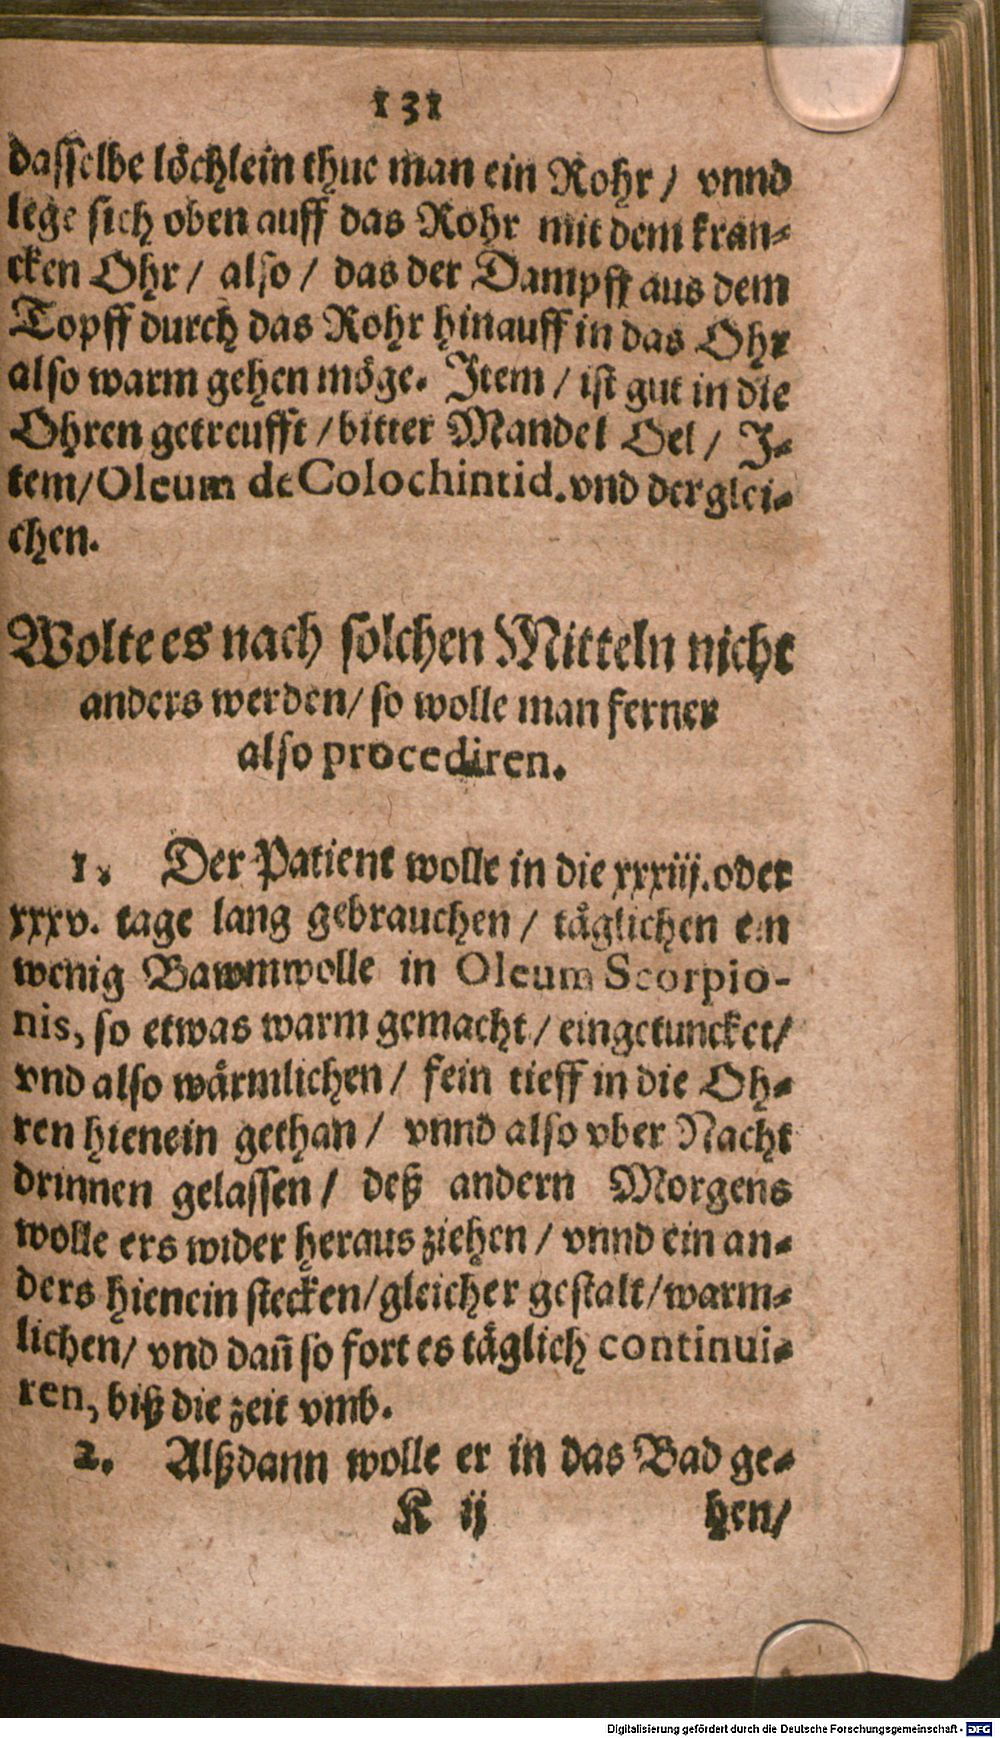 131
dasselbe löchlein thue man ein Rohr / vnnd
lege sich oben auff das Rohr mit dem kran-
cken Ohr / also / das der Dampff aus dem
Topff durch das Rohr hinauff in das Ohr
also warm gehen möge. Item / ist gut in die
Ohren getreufft / bitter Mandel Oel / I-
tem / Oleum de Colochintid. vnd derglei-
chen.
Wolte es nach solchen Mitteln nicht
anders werden / so wolle man ferner
also procediren.
1. Der Patient wolle in die xxxiiij. oder
xxxv. tage lang gebrauchen / täglichen ein
wenig Bawmwolle in Oleum Scorpio-
nis, so etwas warm gemacht / eingetuncket /
vnd also wärmlichen / fein tieff in die Oh-
ren hienein gethan / vnnd also vber Nacht
drinnen gelassen / deß andern Morgens
wolle ers wider heraus ziehen / vnnd ein an-
ders hienein stecken / gleicher gestalt / warm-
lichen / vnd dañ so fort es täglich continui-
ren, biß die zeit vmb.
2. Alßdann wolle er in das Bad ge-
K ij hen /
Digitalisierung gefördert durch die Deutsche Forschungsgemeinschaft - DFG